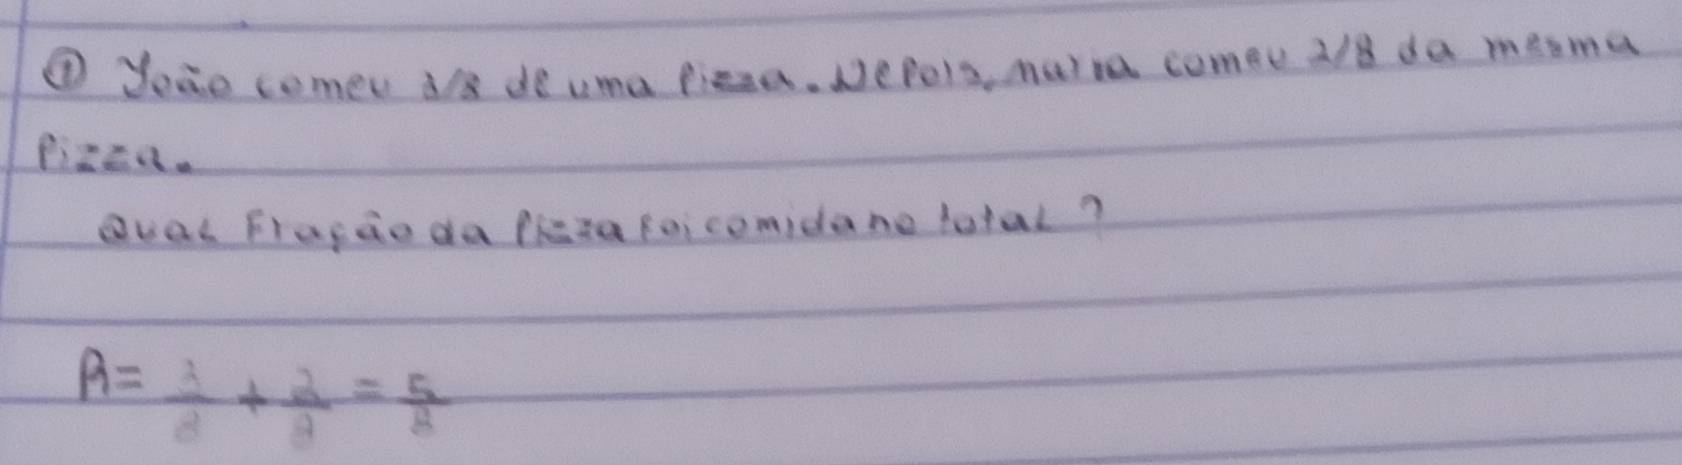 ① João comeu 3/8 de uma Pizza. Depois, maria comeu 2/8 da mesma
Pizza.
Qual Fração da Pizza foi comida no total?
R= 3/8 + 2/8 = 5/8